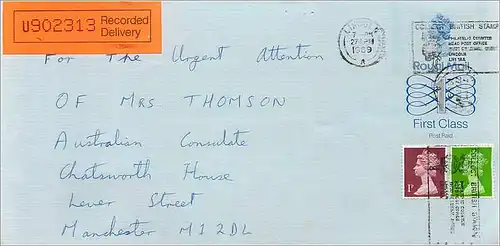 U902313 Recorded
Delivery
COLLECT BRITISH STAMPS
PHILATELIC COUNTER
HEAD POST OFFICE
LINCOLN
LN1 1AA
LINCOLN
7 - PM
27
1989
A
Royal Mail
For The Urgent Attention
OF MRS THOMSON
Australian Consulate
Chatsworth House
Lever Street
Manchester M1 2DL
First Class
Post Paid
1P
COLLECT BRITISH STAMPS